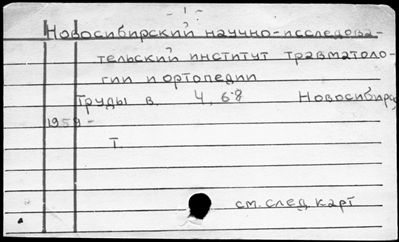 - 1 -
Новосибирский научно-исследова-
тельский институт травматоло-
гии и ортопедии
Труды в. 4, 6-8 Новосибирс
1959-
Т
см. след карт